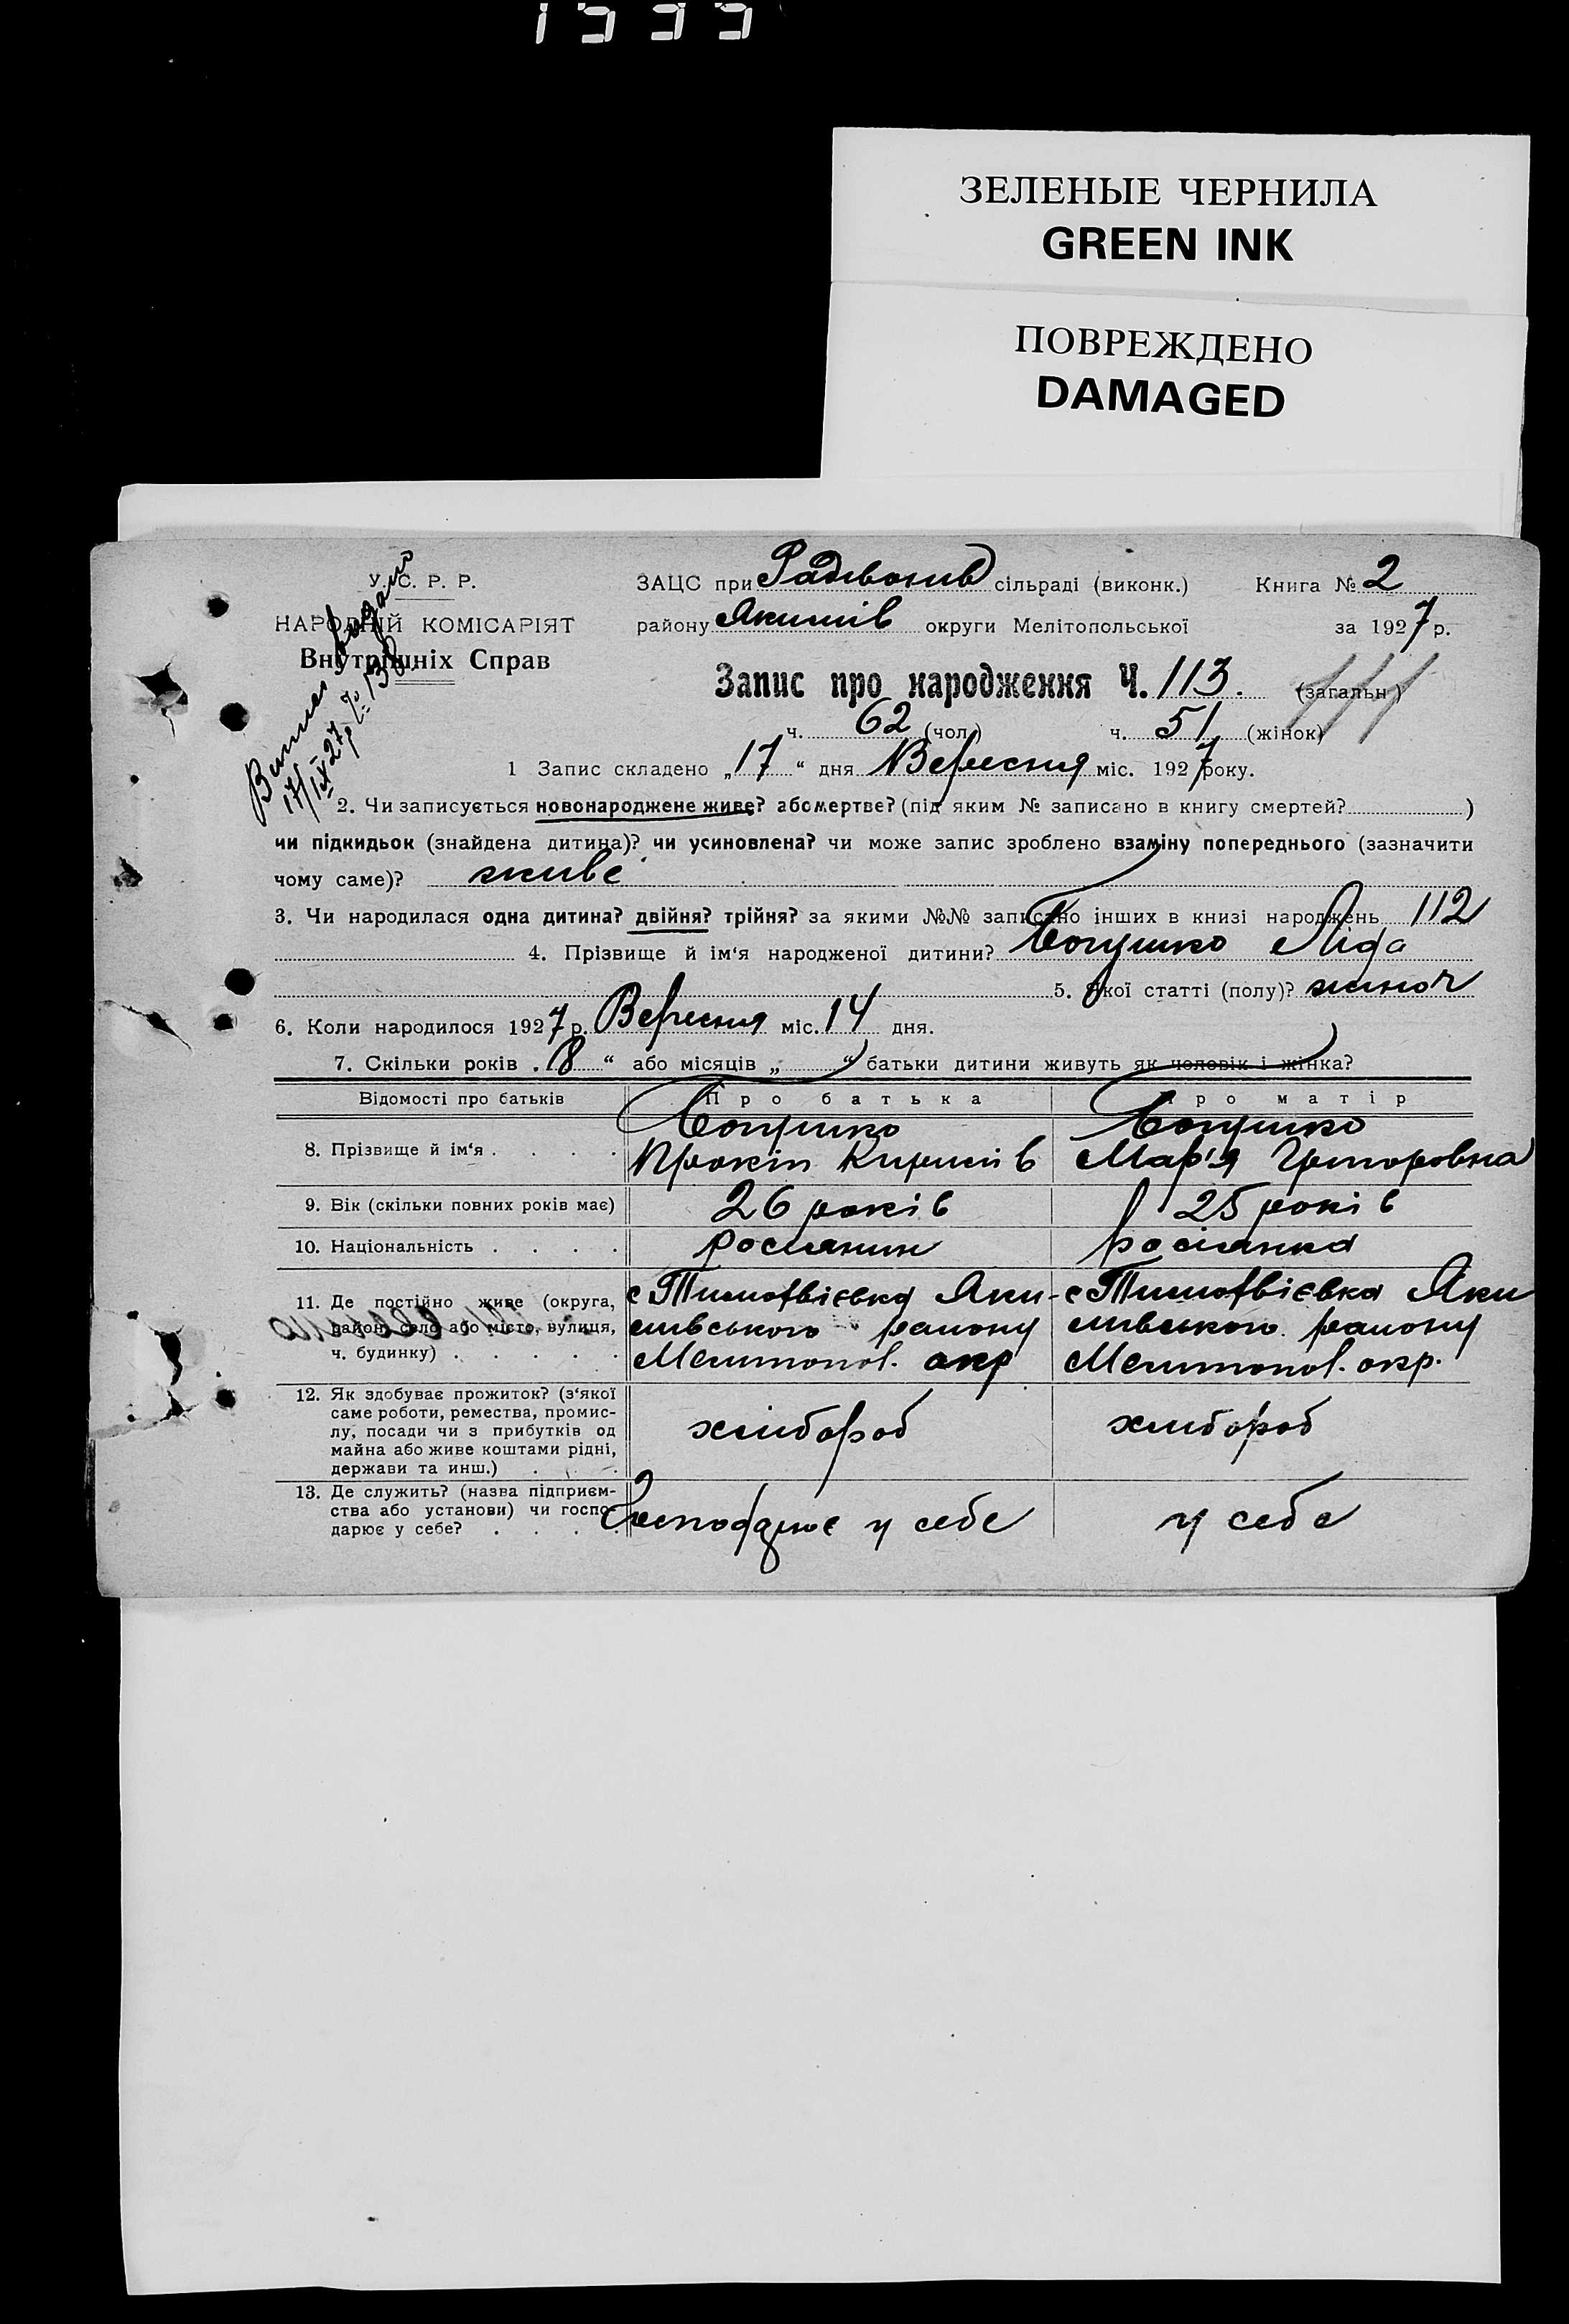 ЗЕЛЕНЫЕ ЧЕРНИЛА
GREEN INK
ПОВРЕЖДЕНО
DAMAGED
У. С. Р. Р.
НАРОДНІЙ КОМІСАРІЯТ
Внутрішніх Справ
17/IX 27 р № 138
ЗАЦС при Радівонів сільраді (виконк.) Книга № 2
району Якимів округи Мелітопольської за 1927 р.
Запис про народження Ч. 113. (загальн.)
ч. 62 (чол.) ч. 51 (жінок)
1 Запис складено „17“ дня Вересня міс. 1927 року.
2. Чи записується новонароджене живе? або мертве? (під яким № записано в книгу смертей? )
чи підкидьок (знайдена дитина)? чи усиновлена? чи може запис зроблено взаміну попереднього (зазначити
чому саме)? живе
3. Чи народилася одна дитина? двійня? трійня? за якими №№ записано інших в книзі народжень 112
4. Прізвище й ім'я народженої дитини? Богушко Ліда
5. Якої статті (полу)? жіноч
6. Коли народилося 1927 р. Вересня міс. 14 дня.
7. Скільки років „8“ або місяців „ “ батьки дитини живуть як чоловік і жінка?
Відомості про батьків Про батька Про матір
8. Прізвище й ім'я . . . . Богушко Богушко
Прокіп Кирилів Мар'я Григоровна
9. Вік (скільки повних років має) 26 років 25 років
10. Національність . . . . росіянин росіянка
11. Де постійно живе (округа, с Тимофвієвка Яки- с Тимофвієвка Яки
район, село або місто, вулиця, мівського району мівського району
ч. будинку) . . . . . Мелітопол. окр Мелітопол. окр.
12. Як здобуває прожиток? (з'якої
саме роботи, ремества, промис-
лу, посади чи з прибутків од хлібороб хлібороб
майна або живе коштами рідні,
держави та инш.) . . .
13. Де служить? (назва підприєм-
ства або установи) чи госпо- Господарює у себе у себе
дарює у себе? . . . .